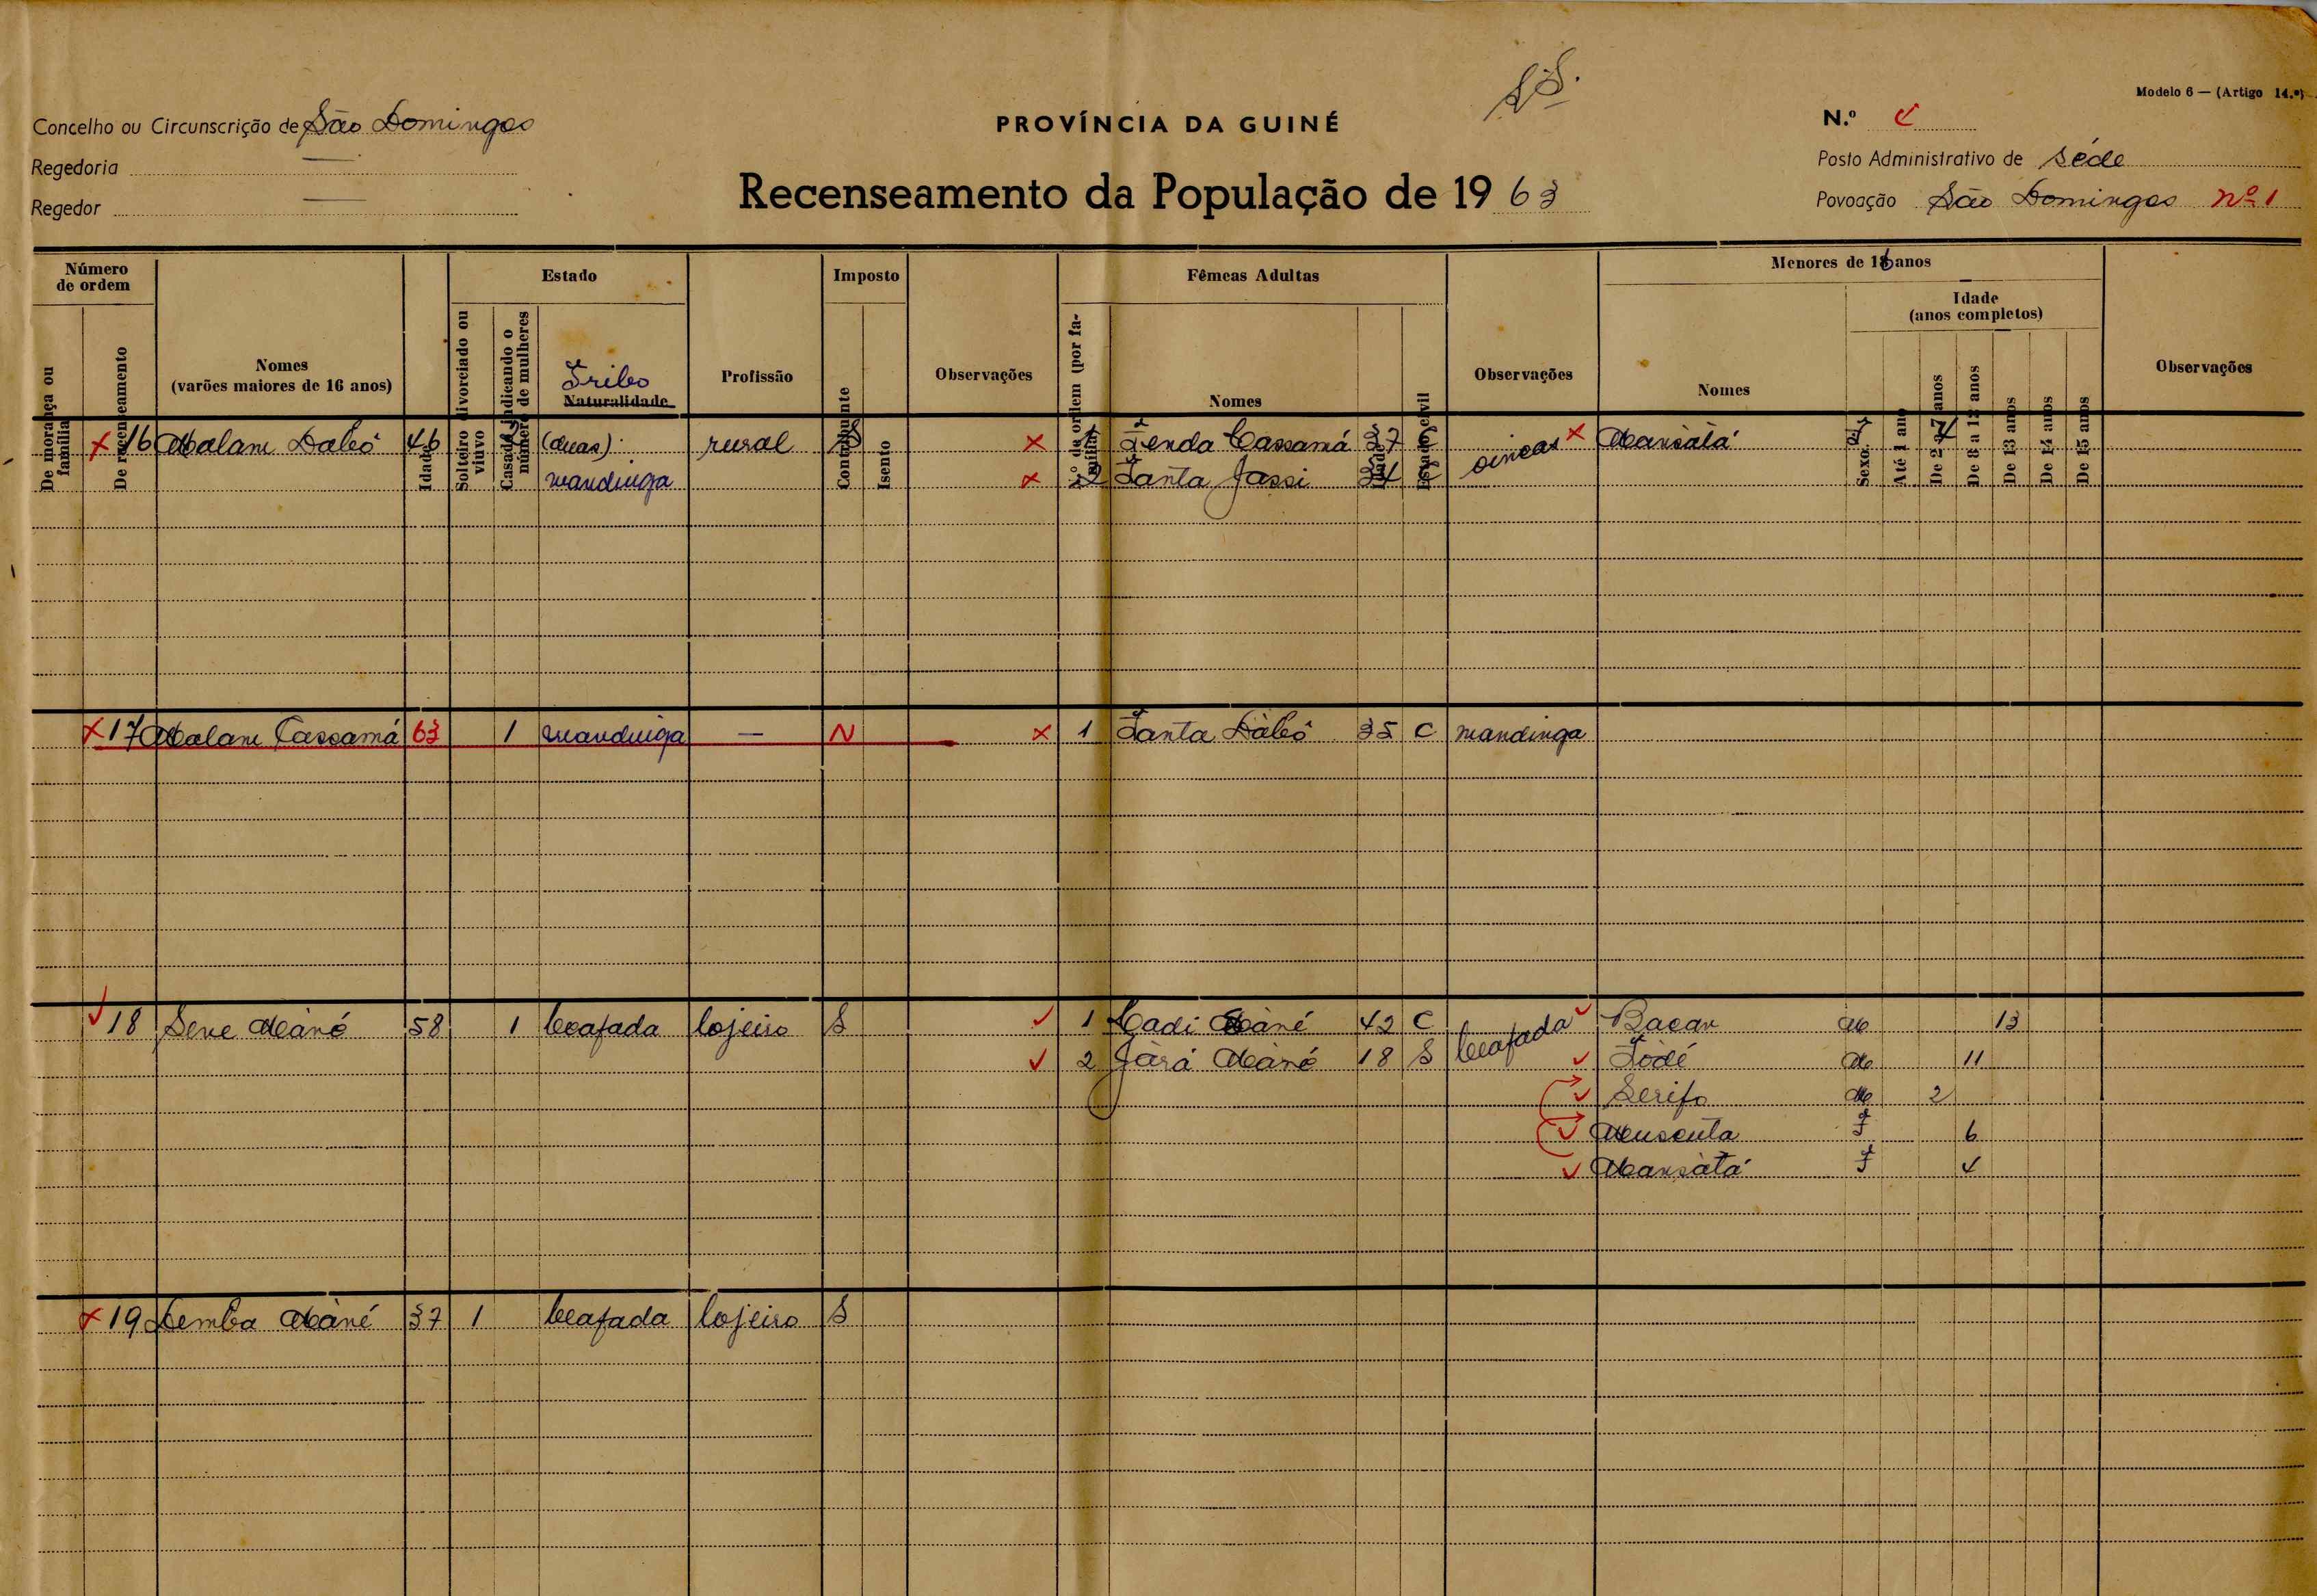 Modelo 6 — (Artigo 14.º)
Concelho ou Circunscrição de São Domingos
PROVÍNCIA DA GUINÉ
N.º 4
Regedoria —
Posto Administrativo de Séde
Regedor —
Recenseamento da População de 1963
Povoação São Domingos nº 1
Número de ordem
De morança ou família
De recenseamento
Nomes (varões maiores de 16 anos)
Idade
Estado
Solteiro divorciado ou viuvo
Casado indicando o número de mulheres
Tribo
Naturalidade
Profissão
Imposto
Contribuinte
Isento
Observações
Fêmeas Adultas
N.º de ordem (por família)
Nomes
Idade
Estado civil
Observações
Menores de 16 anos
Nomes
Sexo
Idade (anos completos)
Até 1 ano
De 2 a 7 anos
De 8 a 12 anos
De 13 anos
De 14 anos
De 15 anos
Observações
x 16 Malam Dabó 46 2 (duas) rural S x 1 Fenda Cassamá 37 C oincas x Mansàtá F 7
mandinga x 2 Fanta Jassi 34 C
x 17 Malam Cassamá 63 1 mandinga — N x 1 Fanta Dàbó 35 C mandinga
✓ 18 Sene Màné 58 1 beafada lojeiro S ✓ 1 Cadi Màné 42 C beafada ✓ Bacar M 13
✓ 2 Járá Màné 18 S ✓ Fòdé M 11
✓ Serifo M 2
✓ Muscuta F 6
✓ Mansàtá F 4
x 19 Demba Màné 37 1 beafada lojeiro S